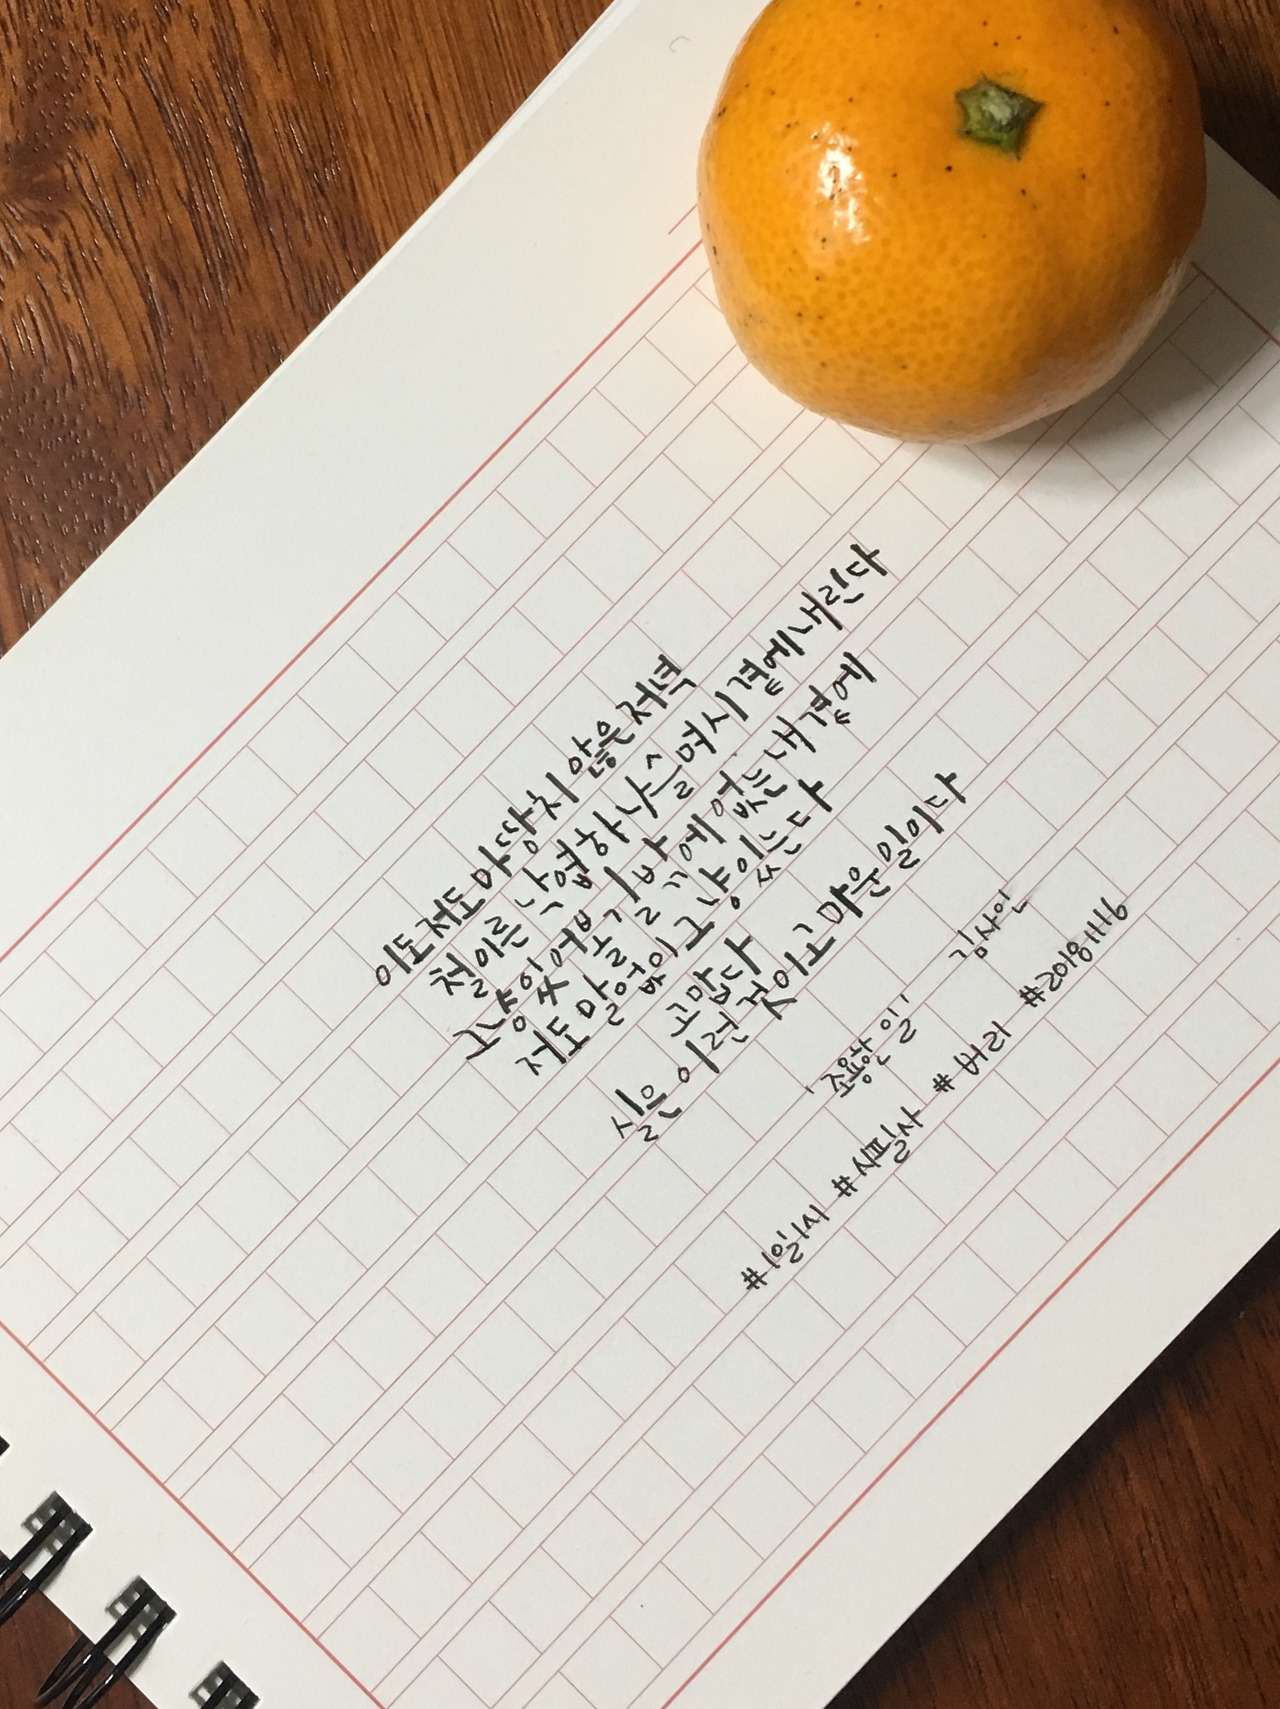 이도 저도 마땅치 않은 저녁
철이른 낙엽 하나 슬며시 곁에 내린다
그냥 있어볼 길밖에 없는 내 곁에
저도 말없이 그냥 있는다
고맙다
실은 이런 것이 고마운 일이다
'조용한 일' 김사인
#1일1시 #시필사 #버리 #20181116